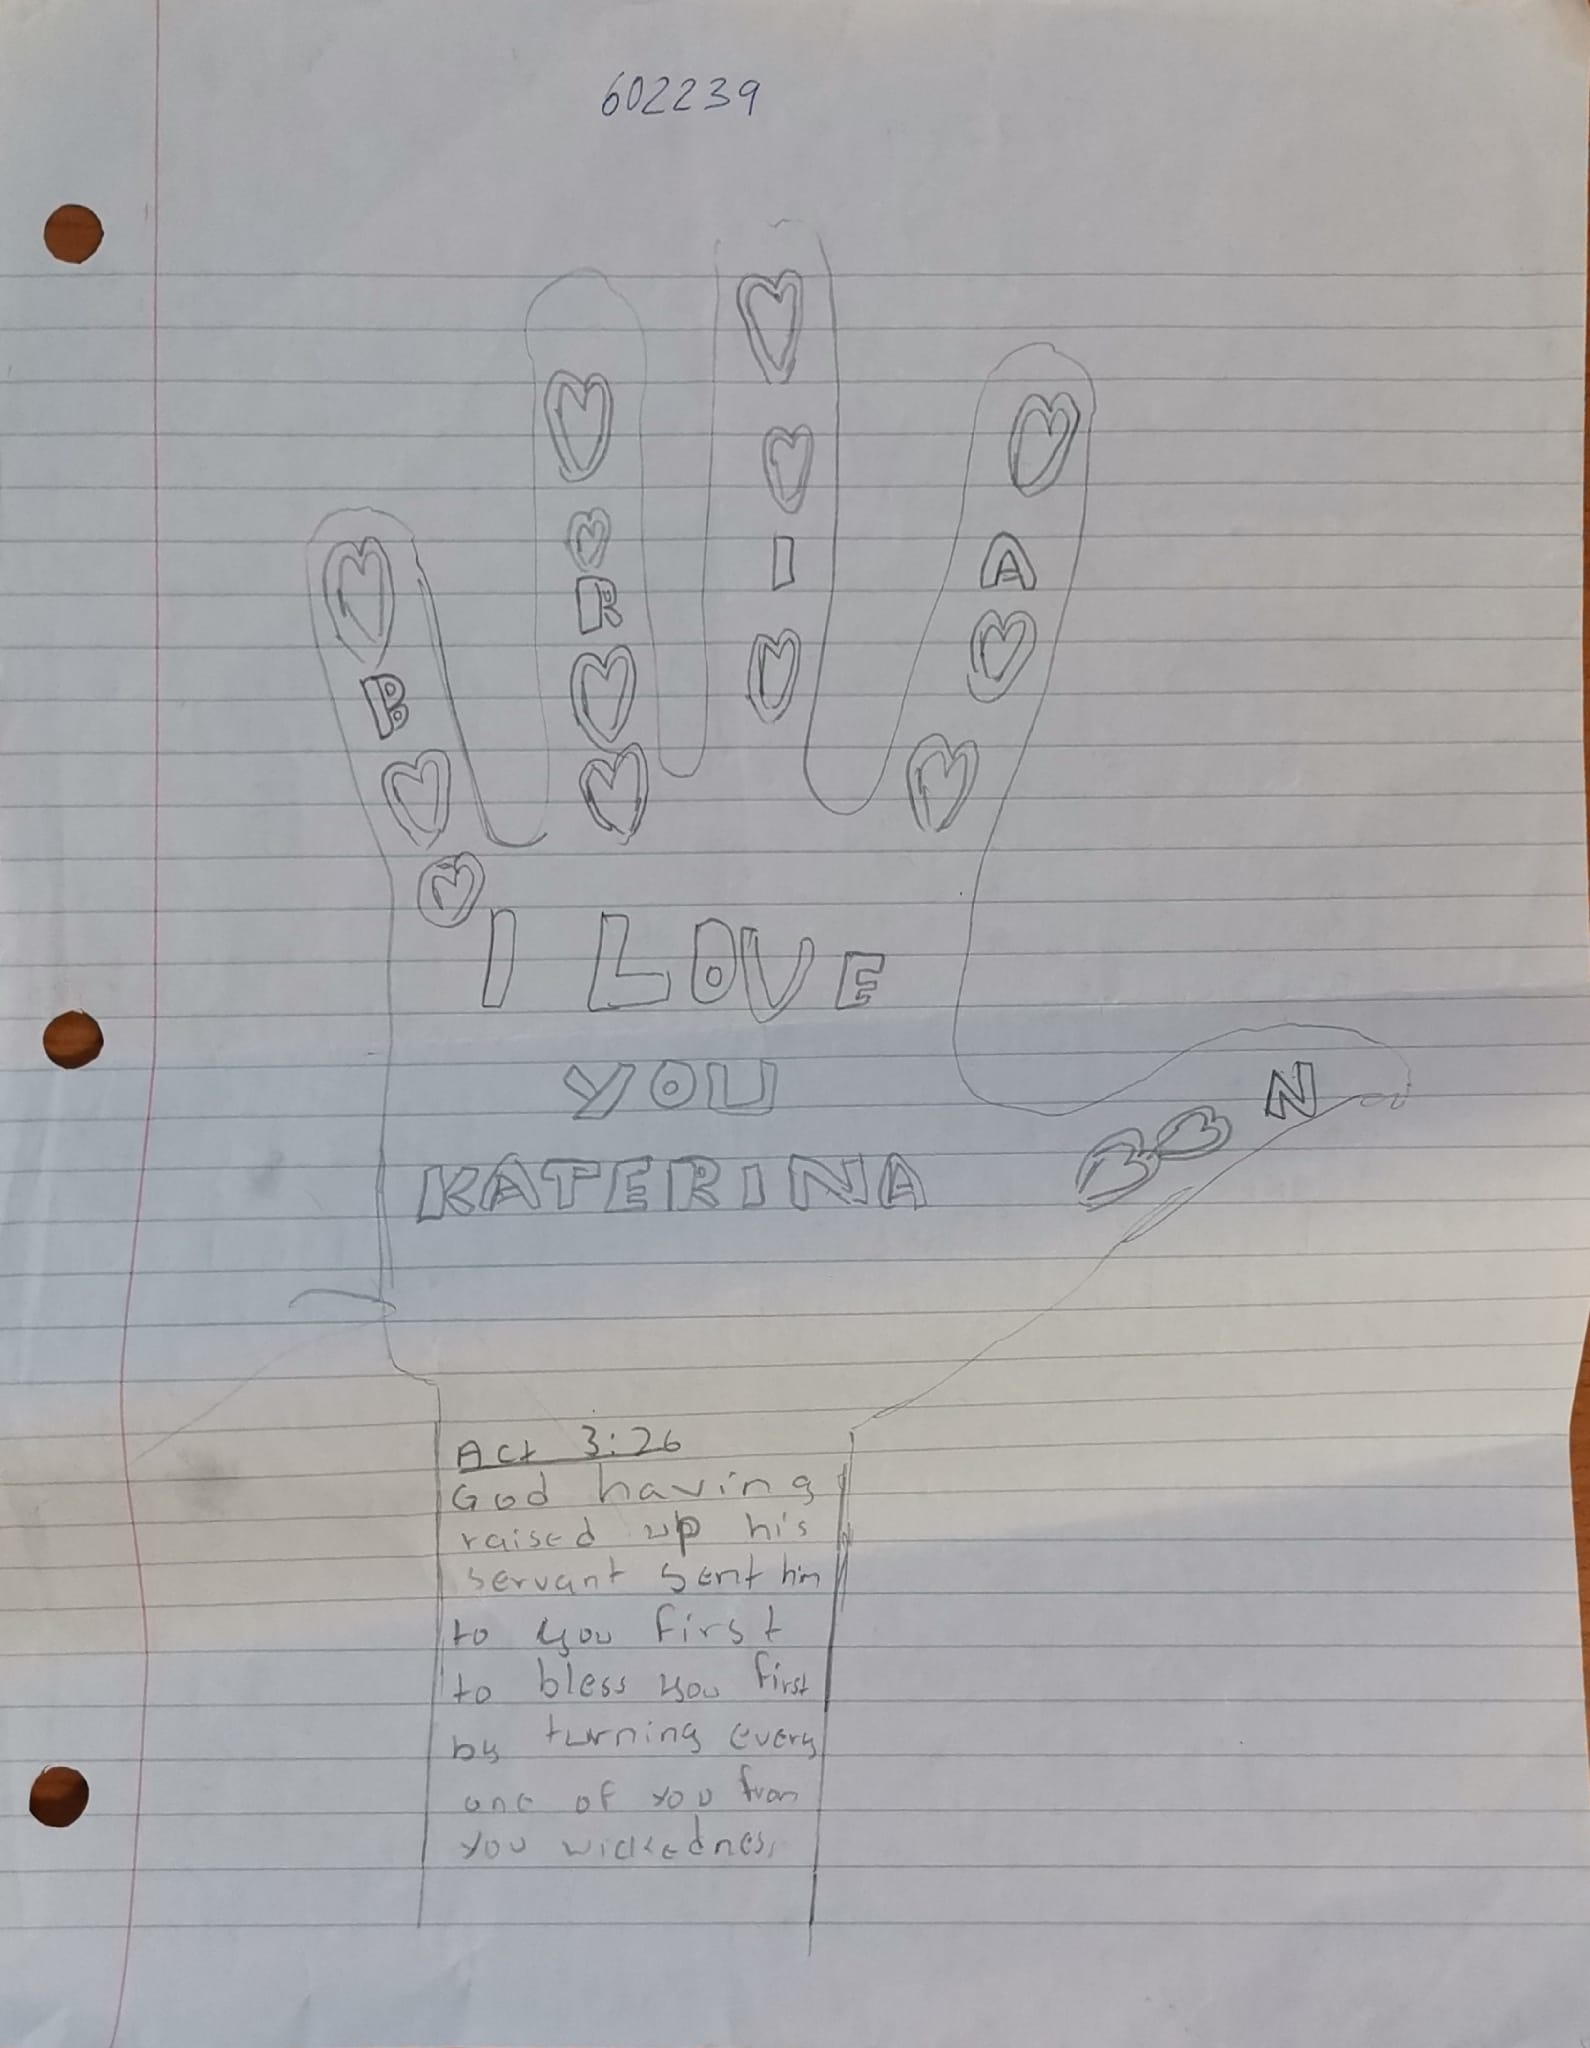 602239
B R I A N
I LOVE
YOU
KATERINA
Act 3:26
God having
raised up his
servant sent him
to you first
to bless you first
by turning every
one of you from
you wickedness